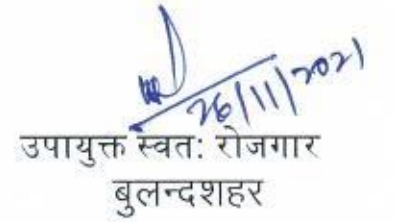 26/11/2021
उपायुक्त स्वत: रोजगार
बुलन्दशहर